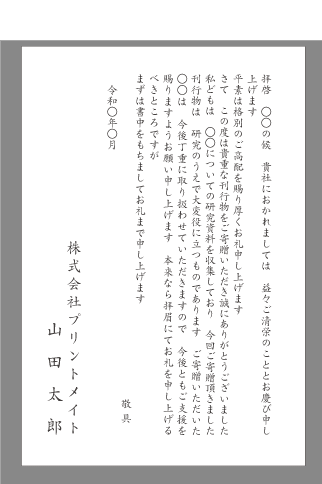 拝啓　〇〇の候　貴社におかれましては　益々ご清栄のこととお慶び申し
上げます
平素は格別のご高配を賜り厚くお礼申し上げます
さて　この度は貴重な刊行物をご寄贈いただき誠にありがとうございました
私どもは　〇〇についての研究資料を収集しており　今回ご寄贈頂きました
刊行物は　研究のうえで大変役に立つものであります　ご寄贈いただいた
〇〇は　今後丁重に取り扱わせていただきますので　今後ともご支援を
賜りますようお願い申し上げます　本来なら拝眉にてお礼を申し上げる
べきところですが
まずは書中をもちましてお礼まで申し上げます
敬具
令和〇年〇月
株式会社プリントメイト
山田太郎